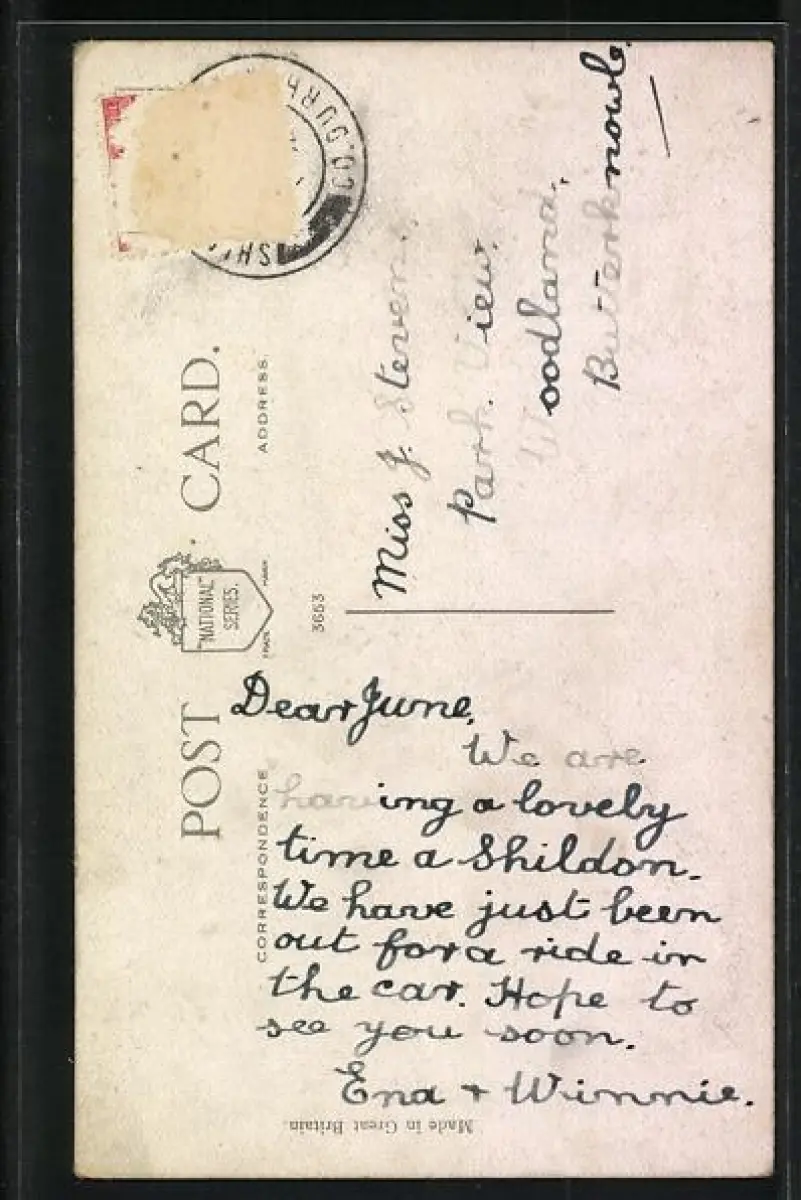 POST CARD.
"NATIONAL" SERIES.
TRADE MARK
CORRESPONDENCE
ADDRESS.
3653
CO. DURH
SHI
Dear June,
We are
having a lovely
time a Shildon.
We have just been
out for a ride in
the car. Hope to
see you soon.
Ena + Winnie.
Miss J. Steven.
Park View,
Woodland,
Butterknowle
Made in Great Britain.